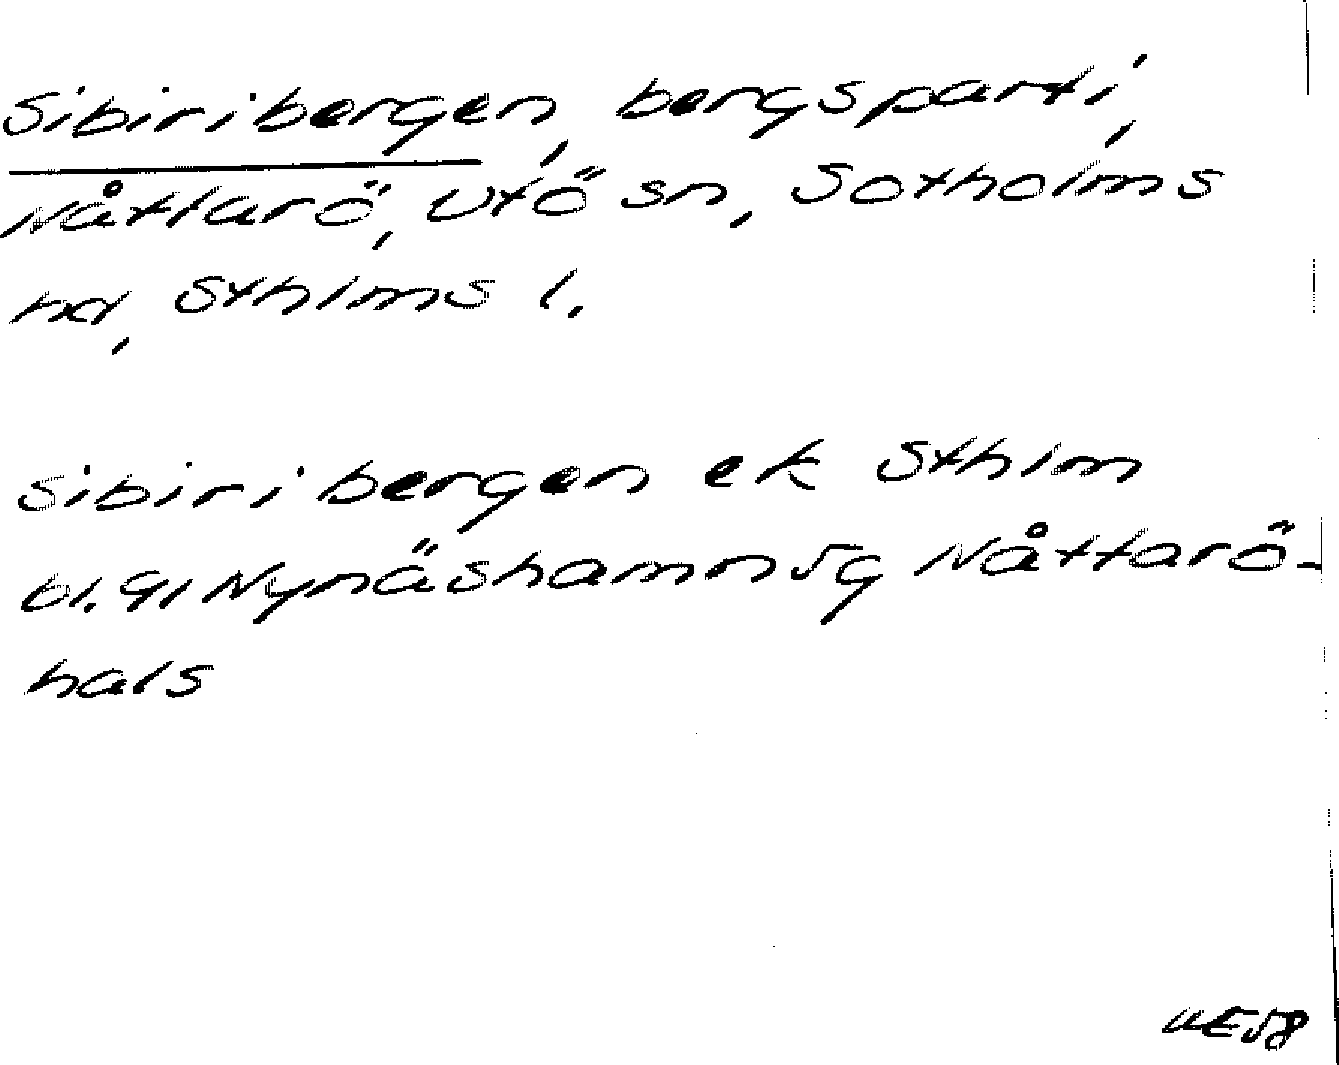 Sibiribergen, bergsparti,
Nåttarö, Utö sn, Sotholms
hd, Sthlms l.
Sibiribergen ek Sthlm
bl. 91 Nynäshamn 5g Nåttarö-
hals
WE58